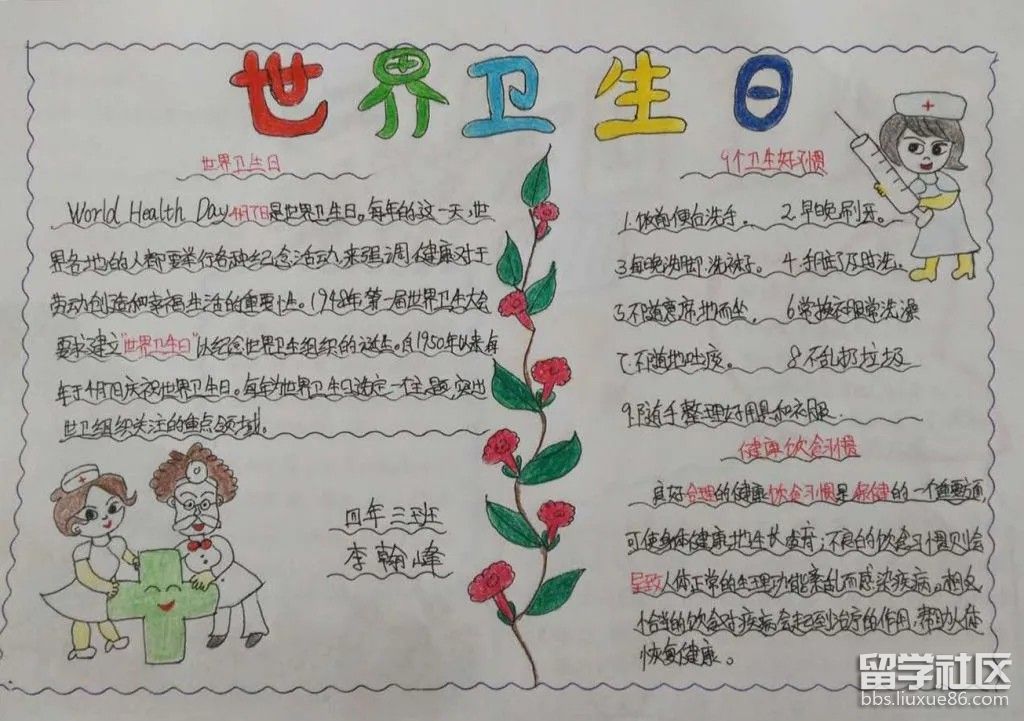 世界卫生日
世界卫生日
World Health Day 4月7日是世界卫生日。每年的这一天,世
界各地的人都要举行各种纪念活动,来强调健康对于
劳动创造和幸福生活的重要性。1948年,第一届世界卫生大会
要求建立"世界卫生日"以纪念世界卫生组织的诞生。自1950年以来,每
年于4月7日庆祝世界卫生日。每年为世界卫生日选定一个主题,突出
世卫组织关注的重点领域。
四年三班
李翰峰
9个卫生好习惯
1.饭前便后洗手。 2.早晚刷牙。
3.每晚洗脚、洗袜子。 4.手脏了及时洗。
5.不随意席地而坐。 6.常换衣服常洗澡
7.不随地吐痰。 8.不乱扔垃圾
9.随手整理好用具和衣服.
健康饮食习惯
良好合理的健康饮食习惯是保健的一个重要方面,
可使身体健康地生长、发育;不良的饮食习惯则会
导致人体正常的生理功能紊乱而感染疾病。相反,
恰当的饮食对疾病会起到治疗的作用,帮助人体
恢复健康。
留学社区
bbs.liuxue86.com